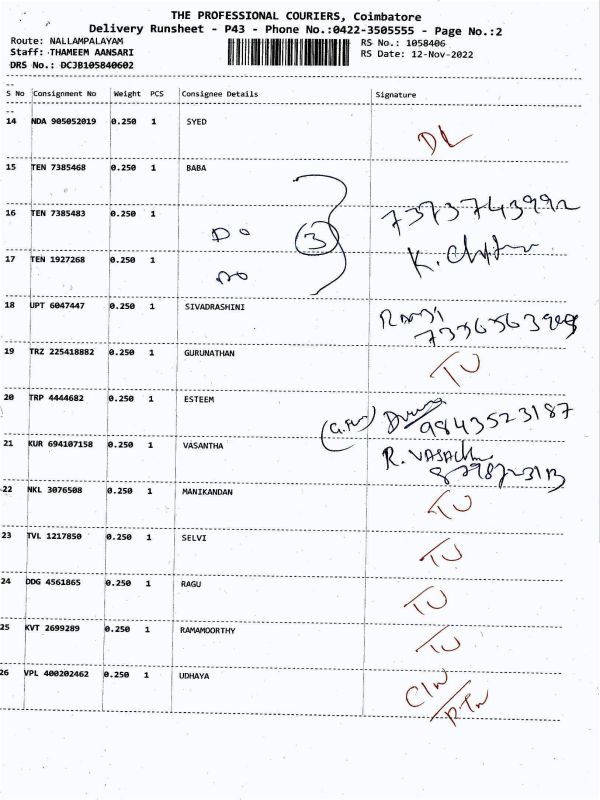 THE PROFESSIONAL COURIERS, Coimbatore
Delivery Runsheet - P43 - Phone No.:0422-3505555 - Page No.:2
Route: NALLAMPALAYAM
Staff: THAMEEM AANSARI
DRS No.: DCJB105840602
RS No.: 1058406
RS Date: 12-Nov-2022
S No Consignment No Weight PCS Consignee Details Signature
14 NDA 905052019 0.250 1 SYED
DL
15 TEN 7385468 0.250 1 BABA
16 TEN 7385483 0.250 1
Do 3 7373743992
17 TEN 1927268 0.250 1
Do
18 UPT 6047447 0.250 1 SIVADRASHINI
19 TRZ 225418882 0.250 1 GURUNATHAN
TU
20 TRP 4444682 0.250 1 ESTEEM
9843523187
21 KUR 694107158 0.250 1 VASANTHA
22 NKL 3076508 0.250 1 MANIKANDAN
TU
23 TVL 1217850 0.250 1 SELVI
TU
24 DDG 4561865 0.250 1 RAGU
TU
25 KVT 2699289 0.250 1 RAMAMOORTHY
TU
26 VPL 400202462 0.250 1 UDHAYA